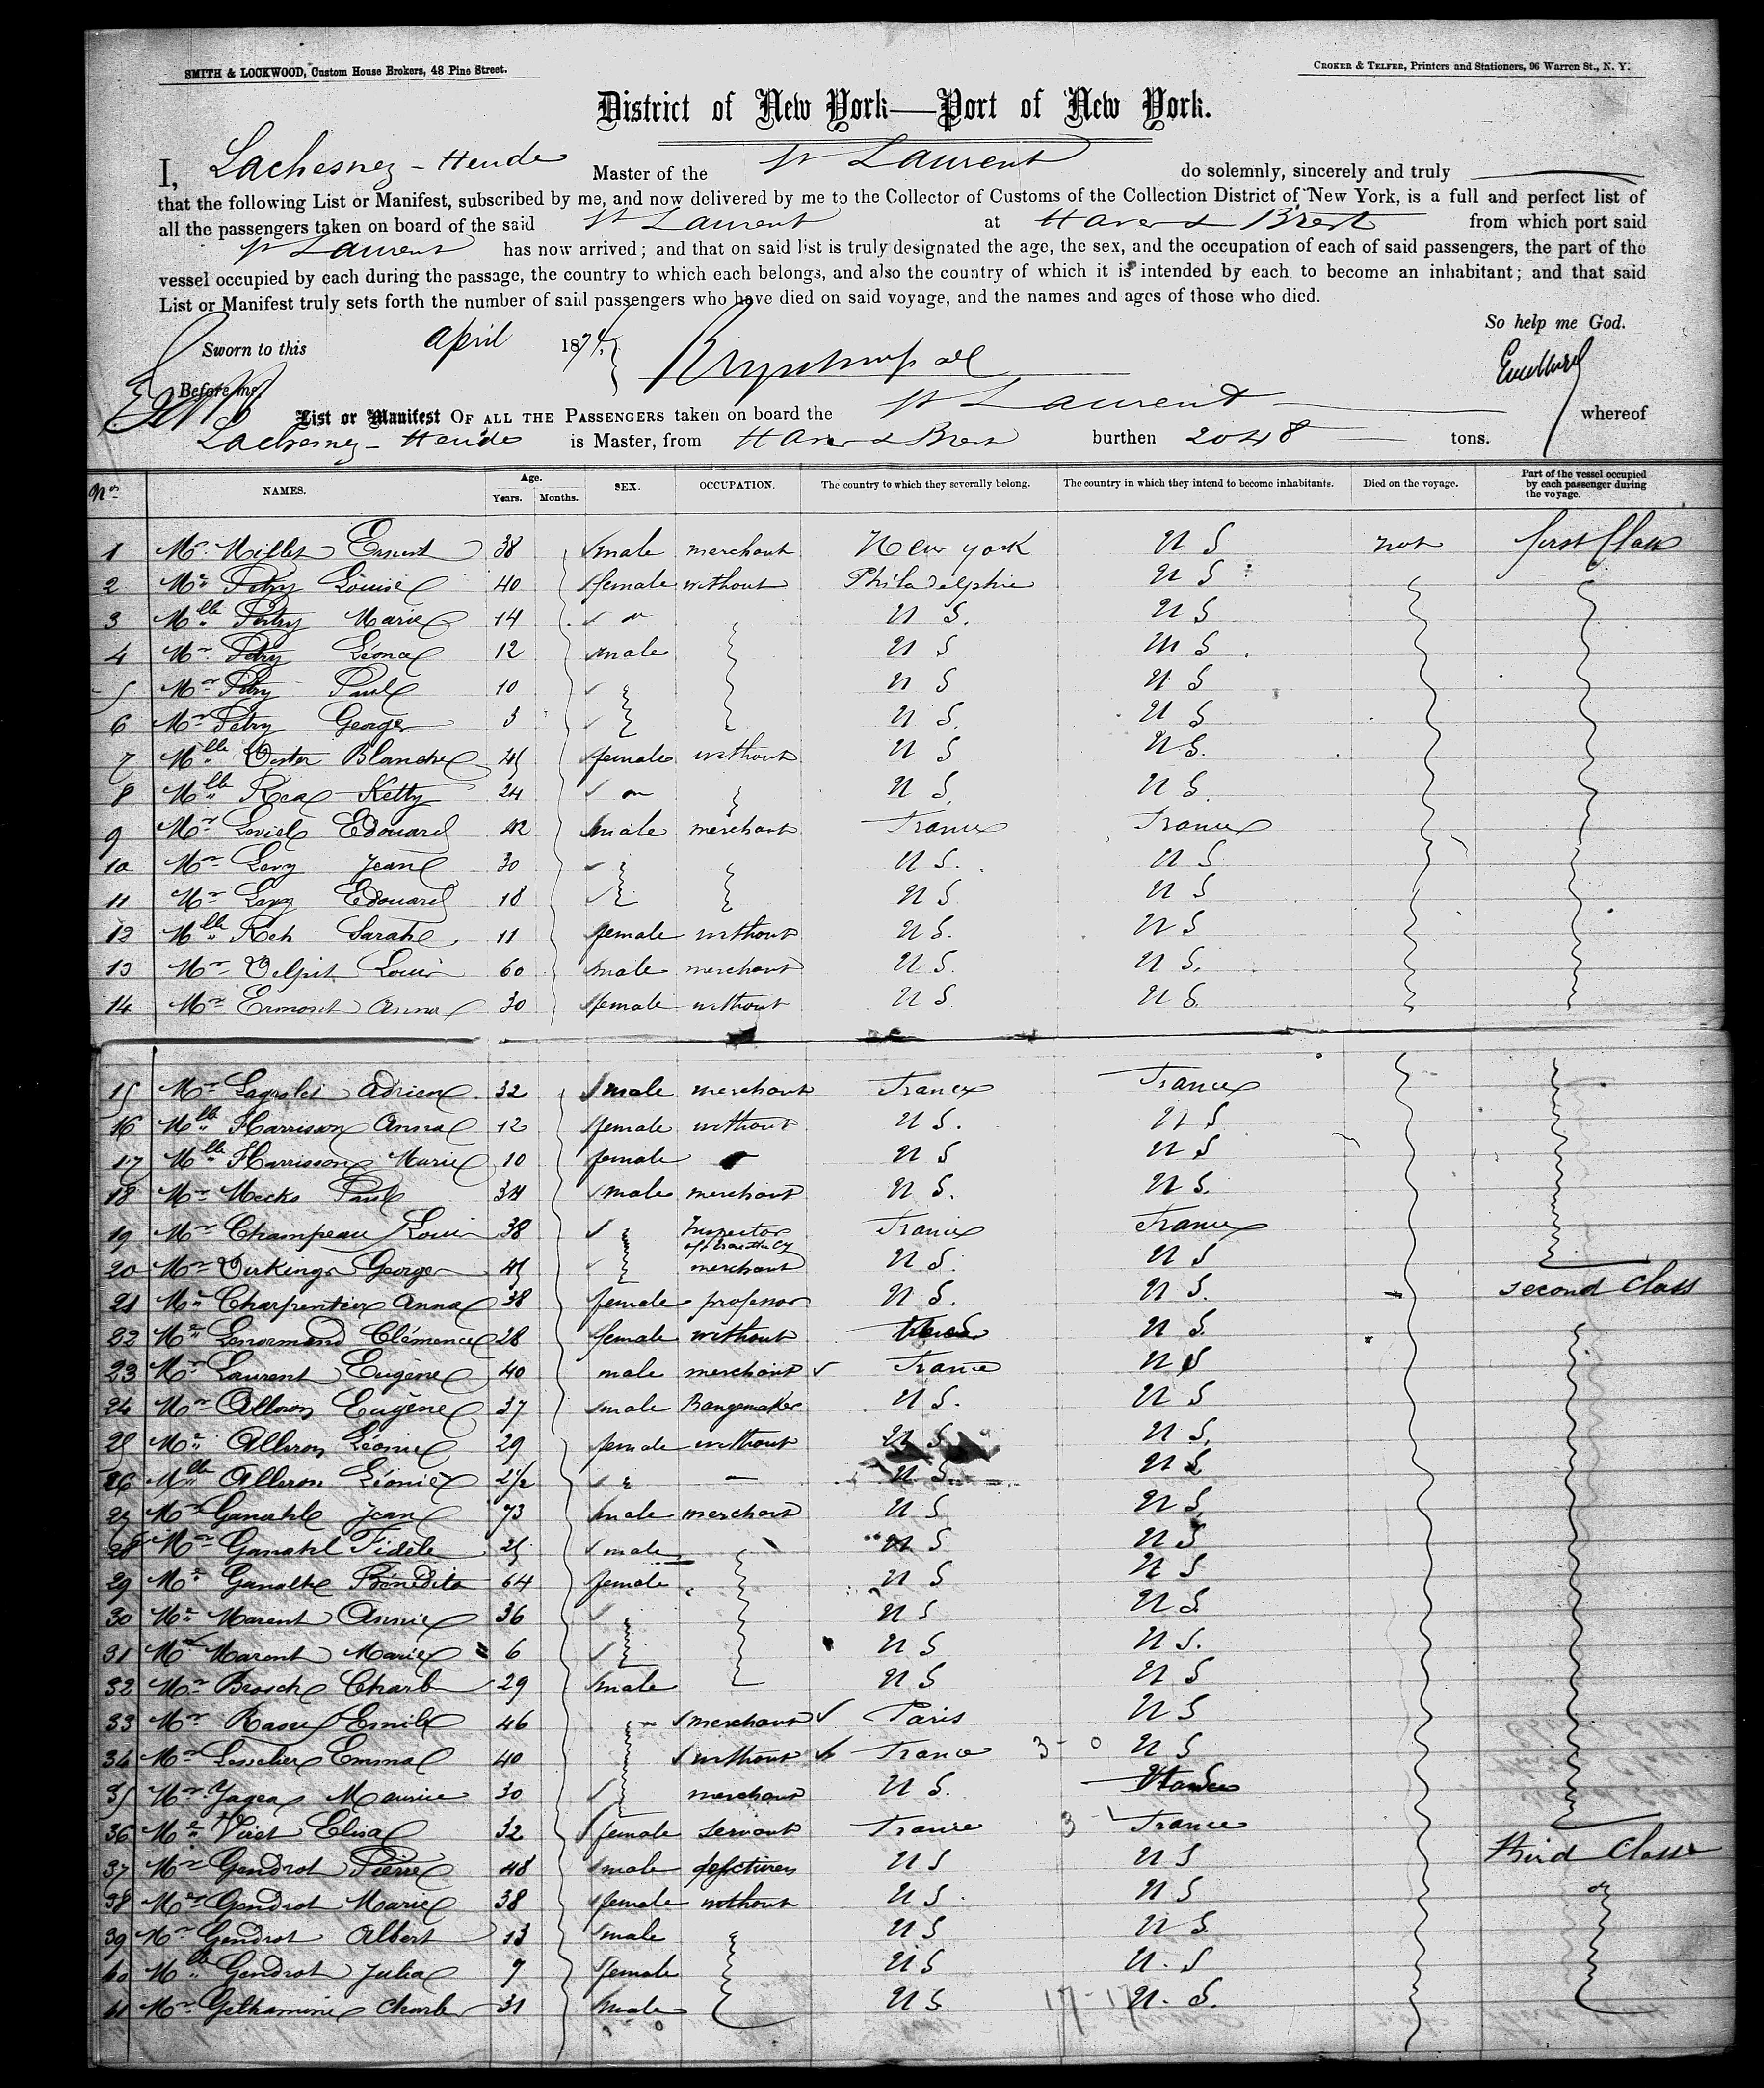 SMITH & LOCKWOOD, Custom House Brokers, 48 Pine Street.
CROKER & TELFER, Printers and Stationers, 96 Warren St., N. Y.
District of New York—Port of New York.
I, Lachesnez-Heude Master of the St Laurent do solemnly, sincerely and truly
that the following List or Manifest, subscribed by me, and now delivered by me to the Collector of Customs of the Collection District of New York, is a full and perfect list of
all the passengers taken on board of the said St Laurent at Havre & Brest from which port said
St Laurent has now arrived; and that on said list is truly designated the age, the sex, and the occupation of each of said passengers, the part of the
vessel occupied by each during the passage, the country to which each belongs, and also the country of which it is intended by each to become an inhabitant; and that said
List or Manifest truly sets forth the number of said passengers who have died on said voyage, and the names and ages of those who died.
So help me God.
Sworn to this April 187
Before me,
List or Manifest OF ALL THE PASSENGERS taken on board the St Laurent whereof
Lachesnez-Heude is Master, from Havre & Brest burthen 2048 tons.
No NAMES. Age. Years. Months. SEX. OCCUPATION. The country to which they severally belong. The country in which they intend to become inhabitants. Died on the voyage. Part of the vessel occupied by each passenger during the voyage.
1 Mr. Ernest 38 male merchant New york U S not first Class
2 Me Petry Louise 40 female without Philadelphie U S
3 Mlle Petry Marie 14 U S. U S
4 Mr Petry Léonce 12 male U S U S
5 Mr Petry Paul 10 U S U S
6 Mr Petry George 3 U S. U S
7 Mlle Blanche female without U S U S.
8 Mlle Rea Ketty 24 U S U S.
9 Mr Edouard 42 male merchant France France
10 Mr Levy Jean 30 U S. U S
11 Mr Levy Edouard 18 U S U S
12 Mlle Sarah 11 female without U S. U S
13 Mr Delpit Louis 60 male merchant U S. U S.
14 Me Ermont Anna 30 female without U S. U S.
15 Mr Adrien 32 male merchant France France
16 Mlle Harrison Anna 12 female without U S. U S
17 Mlle Harrison Marie 10 female U S U S
18 Mr Paul 34 male merchant U S. U S.
19 Mr Champeau Louis 38 Inspector France France
20 Mr George merchant U S. U S
21 Me Charpentier Anna 38 female professor U S. U S. second Class
22 Me Lenormand Clémence 28 female without U S.
23 Mr Laurent Eugène 40 male merchant France U S
24 Mr Eugène 37 male U S. U S
25 Me Léonie 29 female without U S U S.
26 Mlle Léonie 2 1/2 U S. U S
27 Mr Ganahl Jean 73 male merchant U S U S.
28 Mr Ganahl Fidèle male U S U S
29 Me Ganahl Bénédita 64 female U S U S
30 Me Marent Annie 36 U S U S.
31 Marent Marie 6 U S U S.
32 Mr Charles 29 male U S U S
33 Mr Emile 46 merchant Paris U S
34 Emma 40 without France 3-0 U S
35 Mr Maurice 30 merchant U S.
36 Me Viret Elisa 32 female servant France 3- France
37 Mr Gendrot Pierre 48 male U S U S third Class
38 Me Gendrot Marie 38 female without U S. U S
39 Mr Gendrot Albert 13 male U S U S.
40 Mlle Gendrot Julia 7 female U S U. S
41 Mr 31 male U S 17-17 U. S.